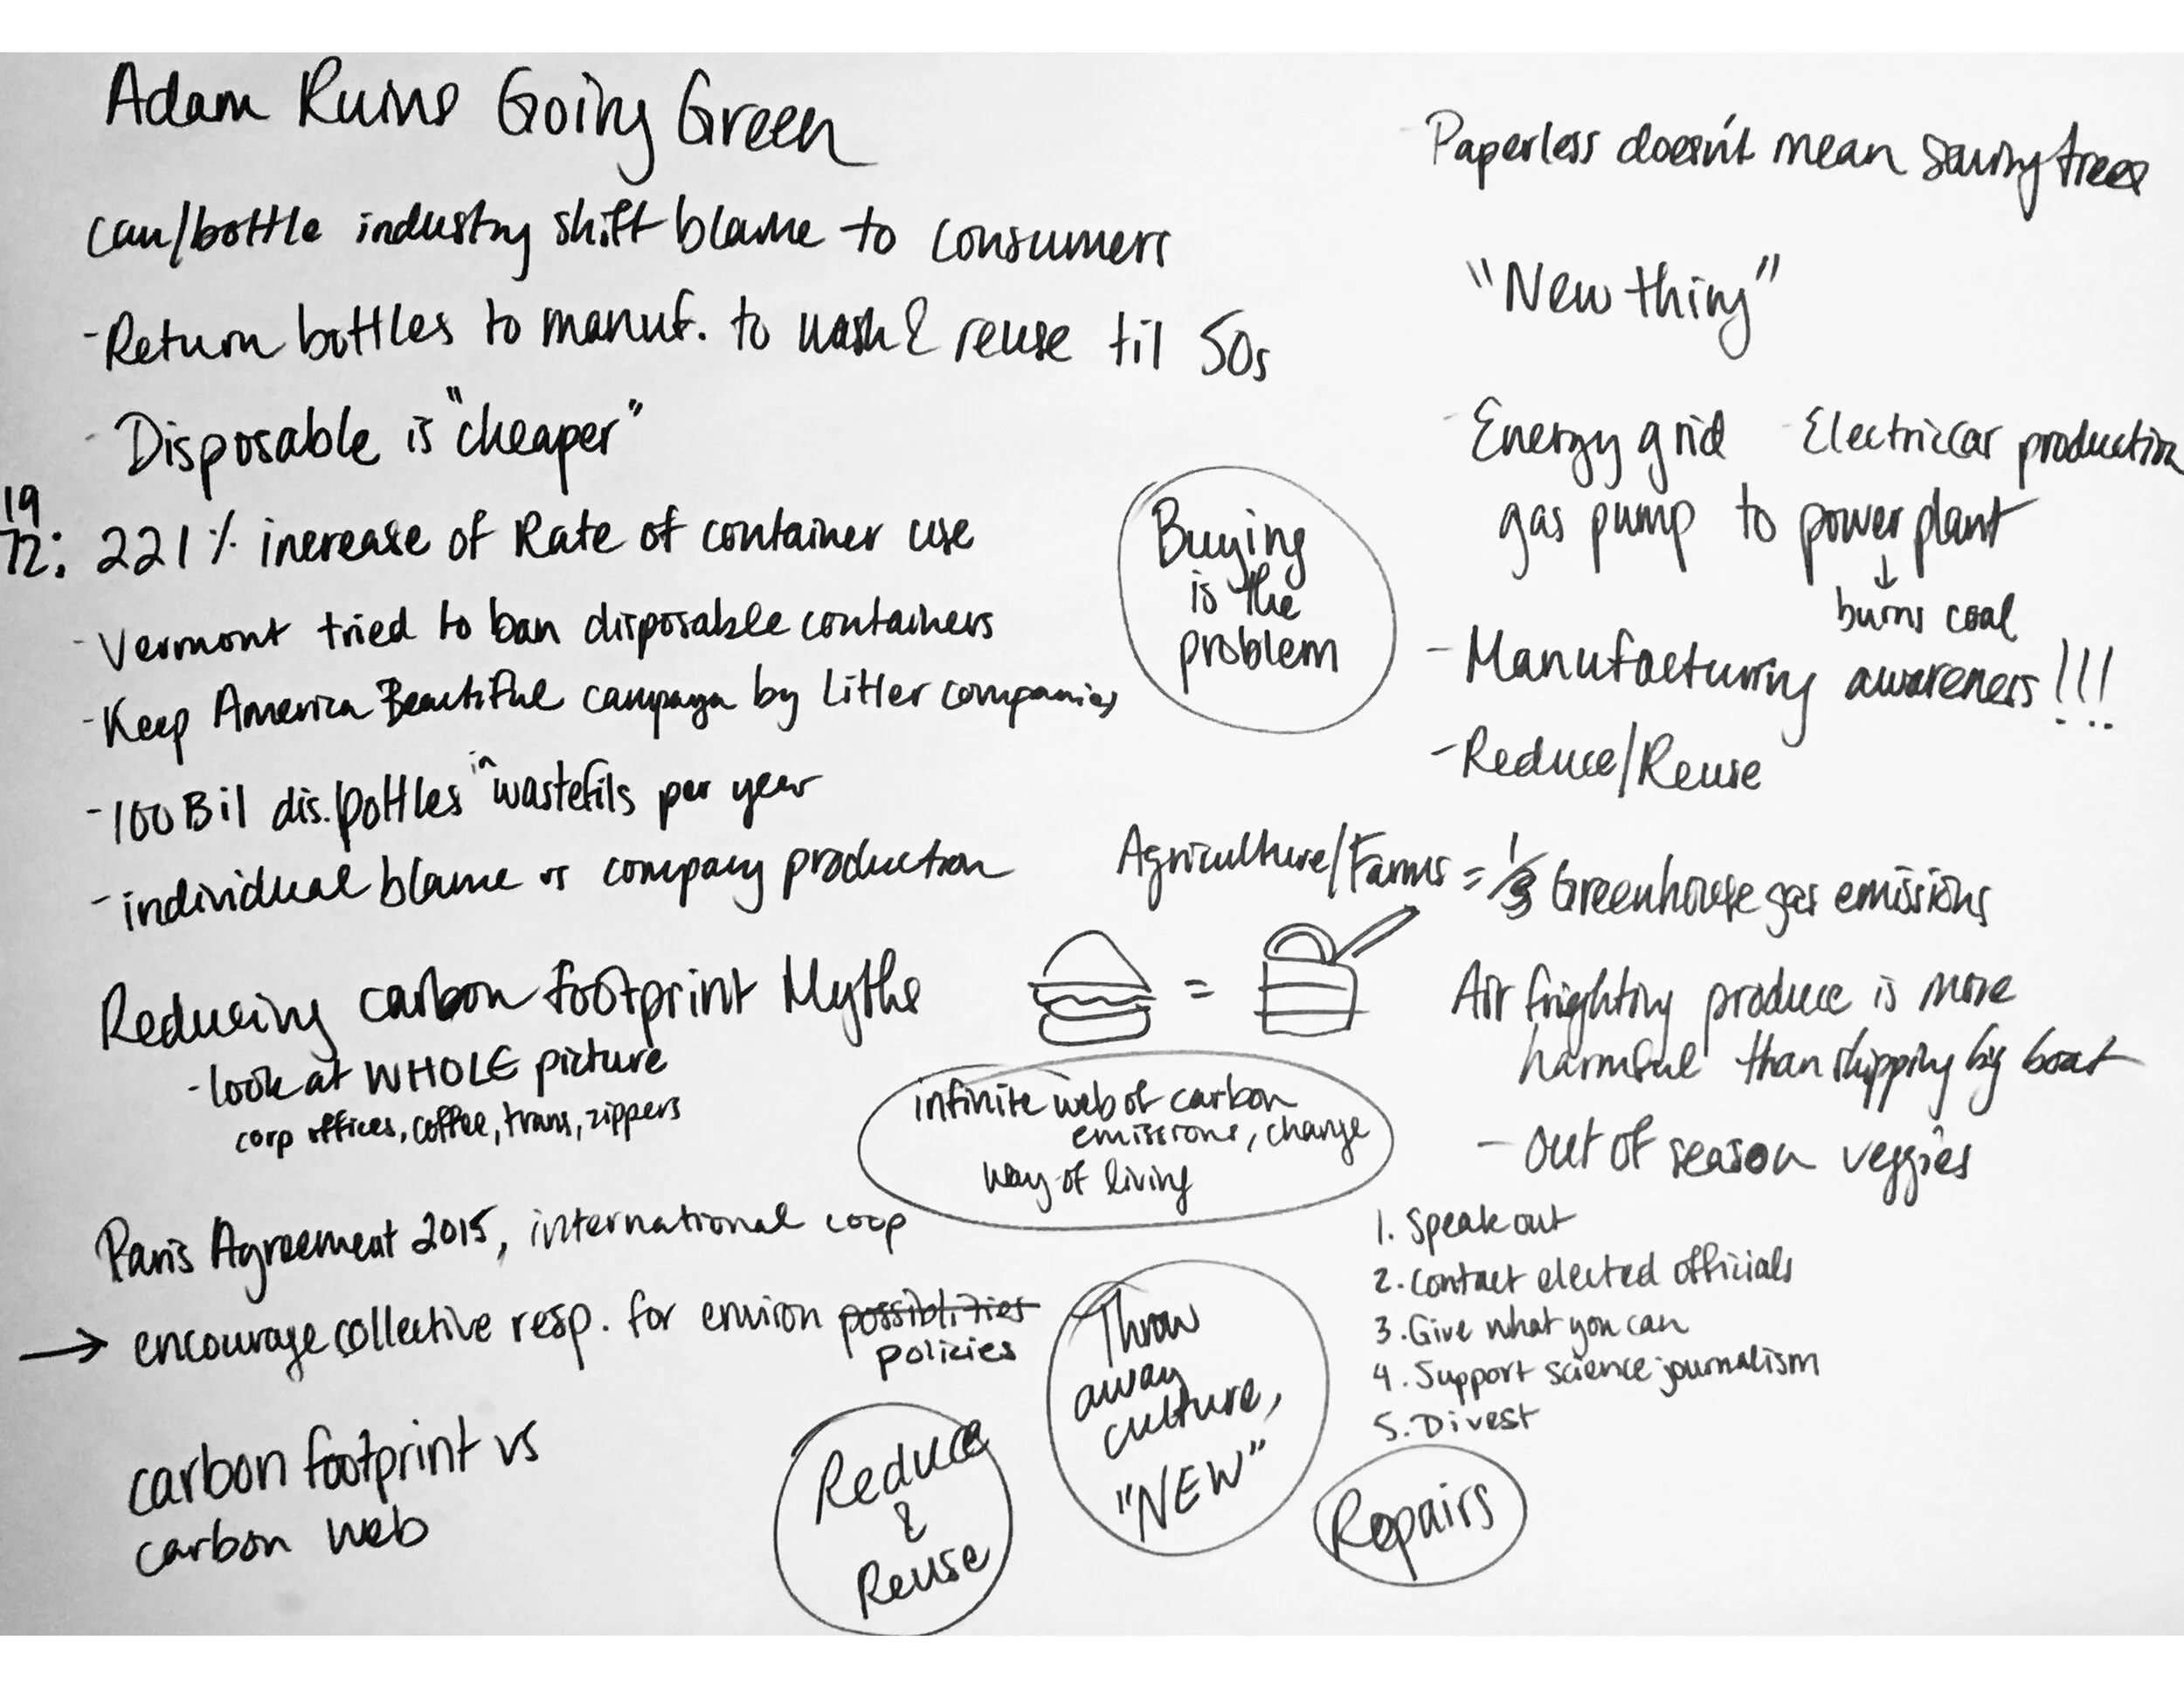 Adam Ruins Going Green
can/bottle industry shift blame to consumers
- Return bottles to manuf. to wash & reuse til 50s
- Disposable is "cheaper"
1972: 221% increase of Rate of container use
- Vermont tried to ban disposable containers
- Keep America Beautiful campaign by Litter companies
- 100 Bil dis. bottles in wastefils per year
- individual blame vs company production
Reducing carbon footprint Myths
- look at WHOLE picture
corp offices, coffee, trans, zippers
Paris Agreement 2015, international coop
→ encourage collective resp. for environ possiblities
policies
carbon footprint vs
carbon web
Buying
is the
problem
Agriculture/Farms = 1/3 Greenhouse gas emissions
=
infinite web of carbon
emissions, change
way of living
Reduce
&
Reuse
Throw
away
culture,
"NEW"
- Paperless doesn't mean saving trees
"New thing"
- Energy grid - Electric car production
gas pump to power plant
↓
burns coal
- Manufacturing awareness!!!
- Reduce/Reuse
Air frighting produce is more
harmful than shipping by boat
- out of season veggies
1. Speak out
2. Contact elected officials
3. Give what you can
4. Support science journalism
5. Divest
Repairs